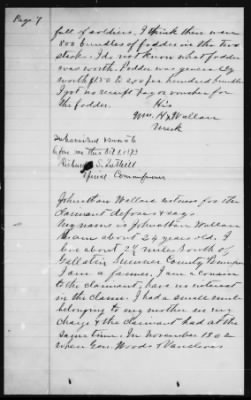 Page 7
full of soldiers. I think there were
800 bundles of fodder in the two
stacks. I do not know what fodder
was worth. Fodder was generally
worth $1.50 to 2.00 per hundred bundles
I got no receipt pay or voucher for
the fodder. His
Wm. H X Wallace
mark
Subscribed & sworn to
before me this Oct 1, 1873
Richard S. Tuthill
Special Commissioner
Johnathan Wallace witness for the
claimant deposes & says
My name is Johnathan Wallace
I am about 24 years old. I
live about 2½ miles South of
Gallatin Sumner County
I am a farmer. I am a cousin
to the claimant, have no interest
in the claim. I had a small mule
belonging to my mother in my
charge & the claimant had at the
same time. In November 1862
when Gen. Woods & Vancleves